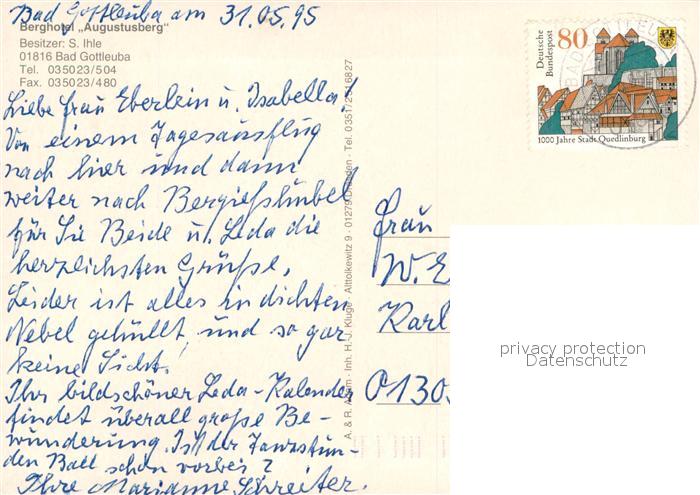 Bad Gottleuba am 31.05.95
Berghotel „Augustusberg"
Besitzer: S. Ihle
01816 Bad Gottleuba
Tel. 035023/504
Fax. 035023/480
Liebe Frau Eberlein u. Isabella!
Von einem Tagesausflug
nach hier und dann
weiter nach Bergießhübel
für Sie Beide u. Leda die
herzlichsten Grüße.
Leider ist alles in dichten
Nebel gehüllt und so gar
keine Sicht!
Ihr bildschöner Leda-Kalender
findet überall große Be-
wunderung. Ist der
den Ball schon vorbei?
Ihre Marianne Schreiter.
A. & R. Adam · Inh. H.-J. Kluge · Alttolkewitz 9 · 01279 Dresden · Tel. 0351/2516827
Deutsche
Bundespost
80
1000 Jahre Stadt Quedlinburg
Frau
W. E
Karl
01305
privacy protection
Datenschutz